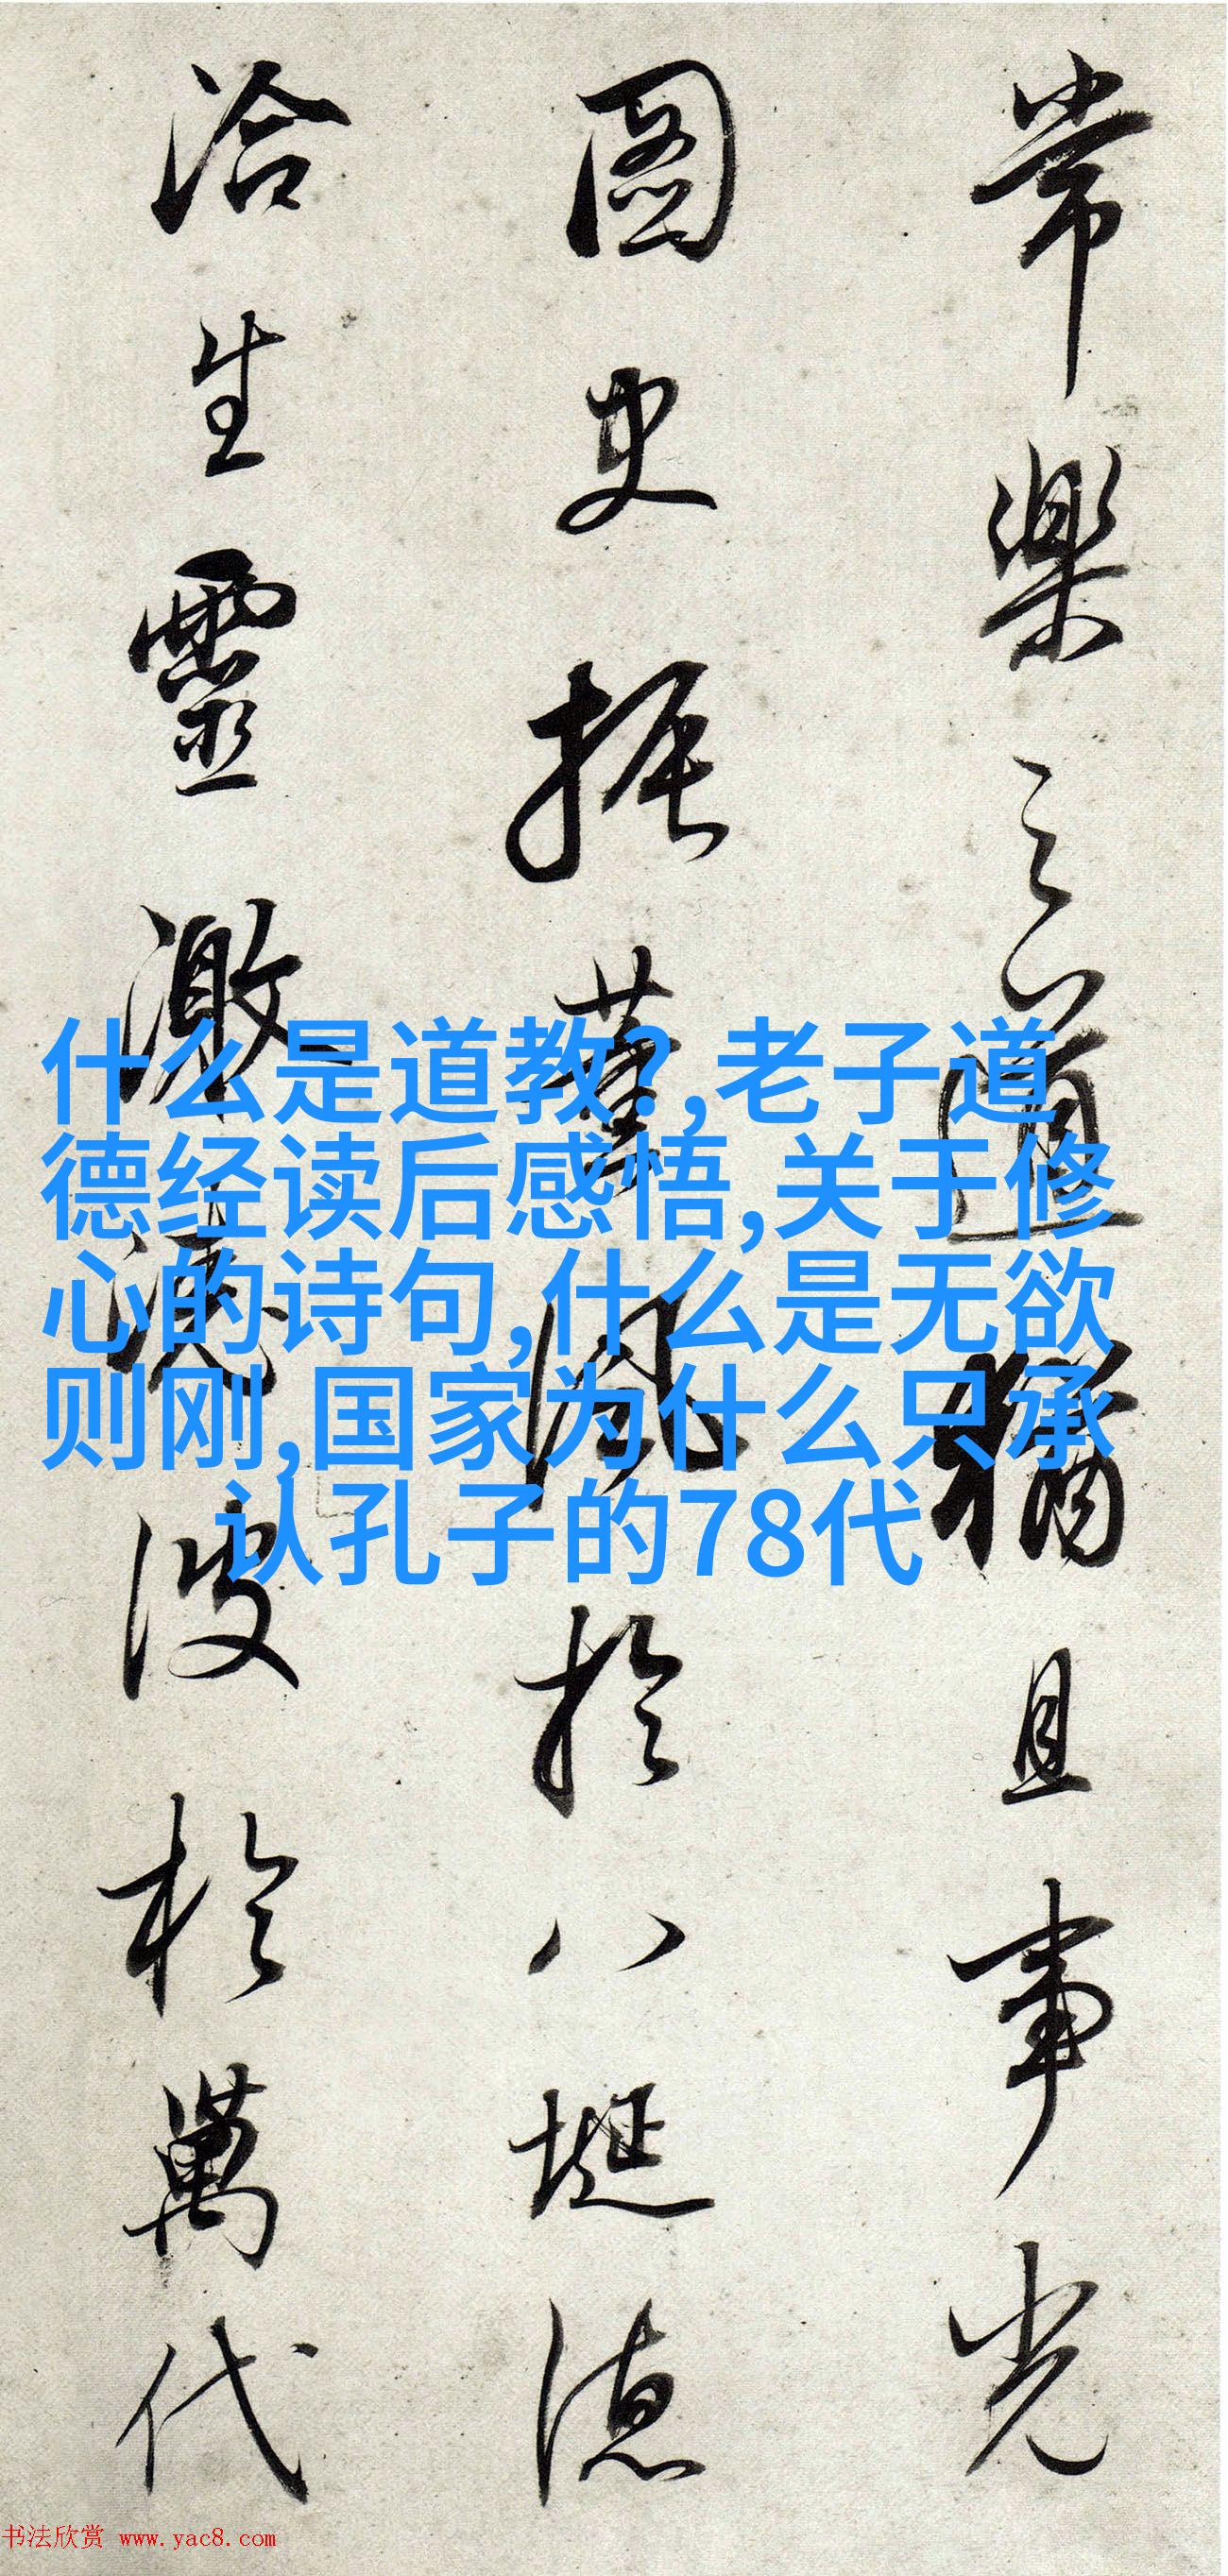 常樂之道猶且事光
圖史振薰風於八埏德
洽生靈激波於萬代
什么是道教?,老子道
德经读后感悟,关于修
心的诗句,什么是无欲
则刚,国家为什么只承
认孔子的78代
书法欣赏 www.yac8.com